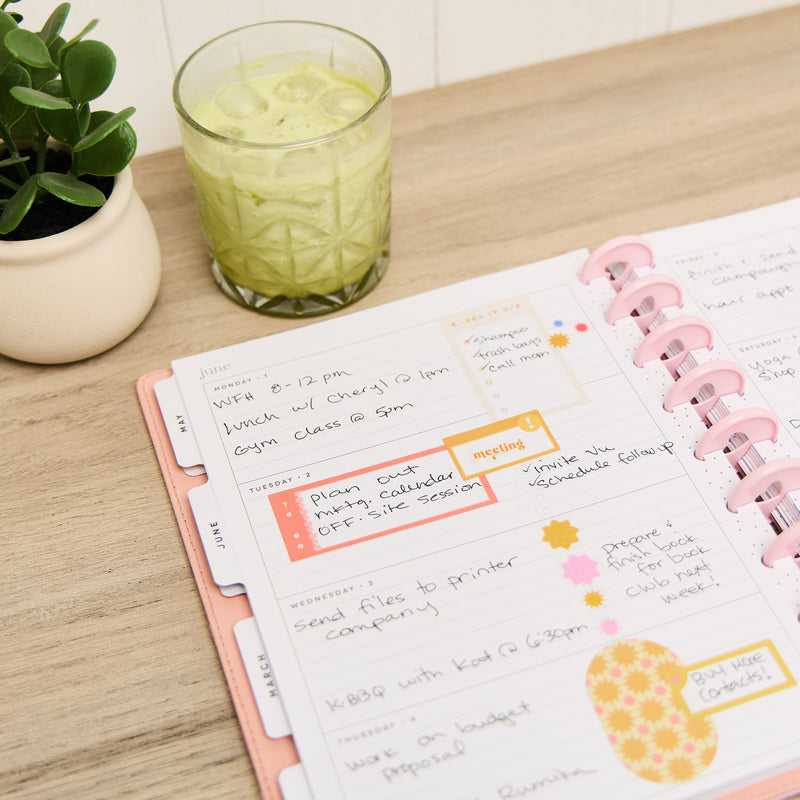 june
MONDAY · 1
WFH 8-12 pm
Lunch w/ Cheryl @ 1pm
Gym class @ 5pm
CHECK IT OFF
✓Shampoo
✓trash bags
✓call mom
TUESDAY · 2
TO DO
plan out
mktg. calendar
OFF-Site Session
!
meeting
✓invite Viv
✓Schedule followup
WEDNESDAY · 3
send files to printer
company
KBBQ with Kat @ 6:30pm
prepare &
finish book
for book
club next
week!
THURSDAY · 4
work on budget
proposal
BUY MORE
Contacts!
FRIDAY · 5
finish & send
campaign
hair appt
SATURDAY · 6
yoga
Shop
MAY
JUNE
MARCH